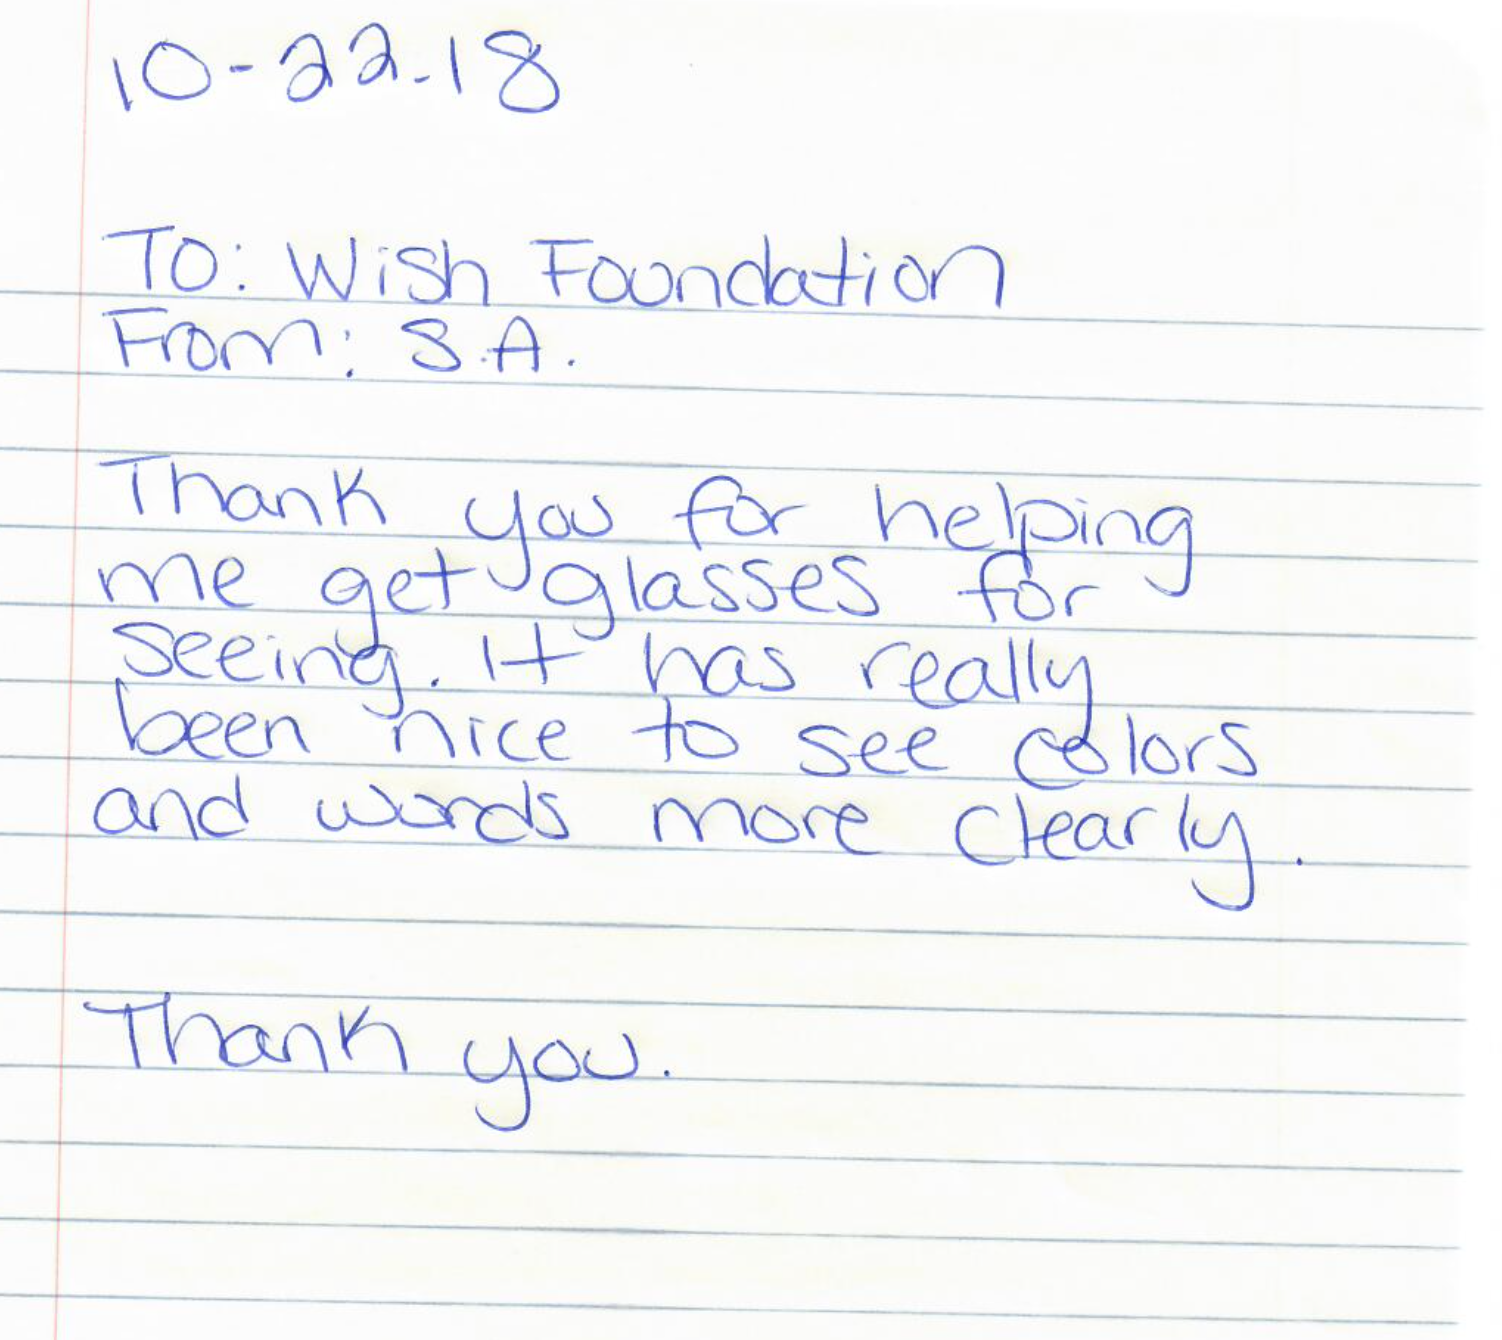 10-22-18
To: Wish Foundation
From: S.A.
Thank you for helping
me get glasses for
seeing. It has really
been nice to see colors
and words more clearly.
Thank you.